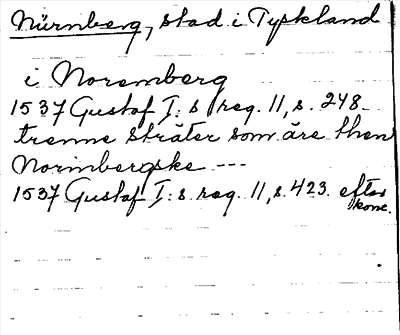 Nürnberg, stad i Tyskland
i Noremberg
1537 Gustaf I:s reg. 11, s. 248.
trenne stråter som äre then
Norimbergske ---
1537 Gustaf I:s reg. 11, s. 423. efter
konc.